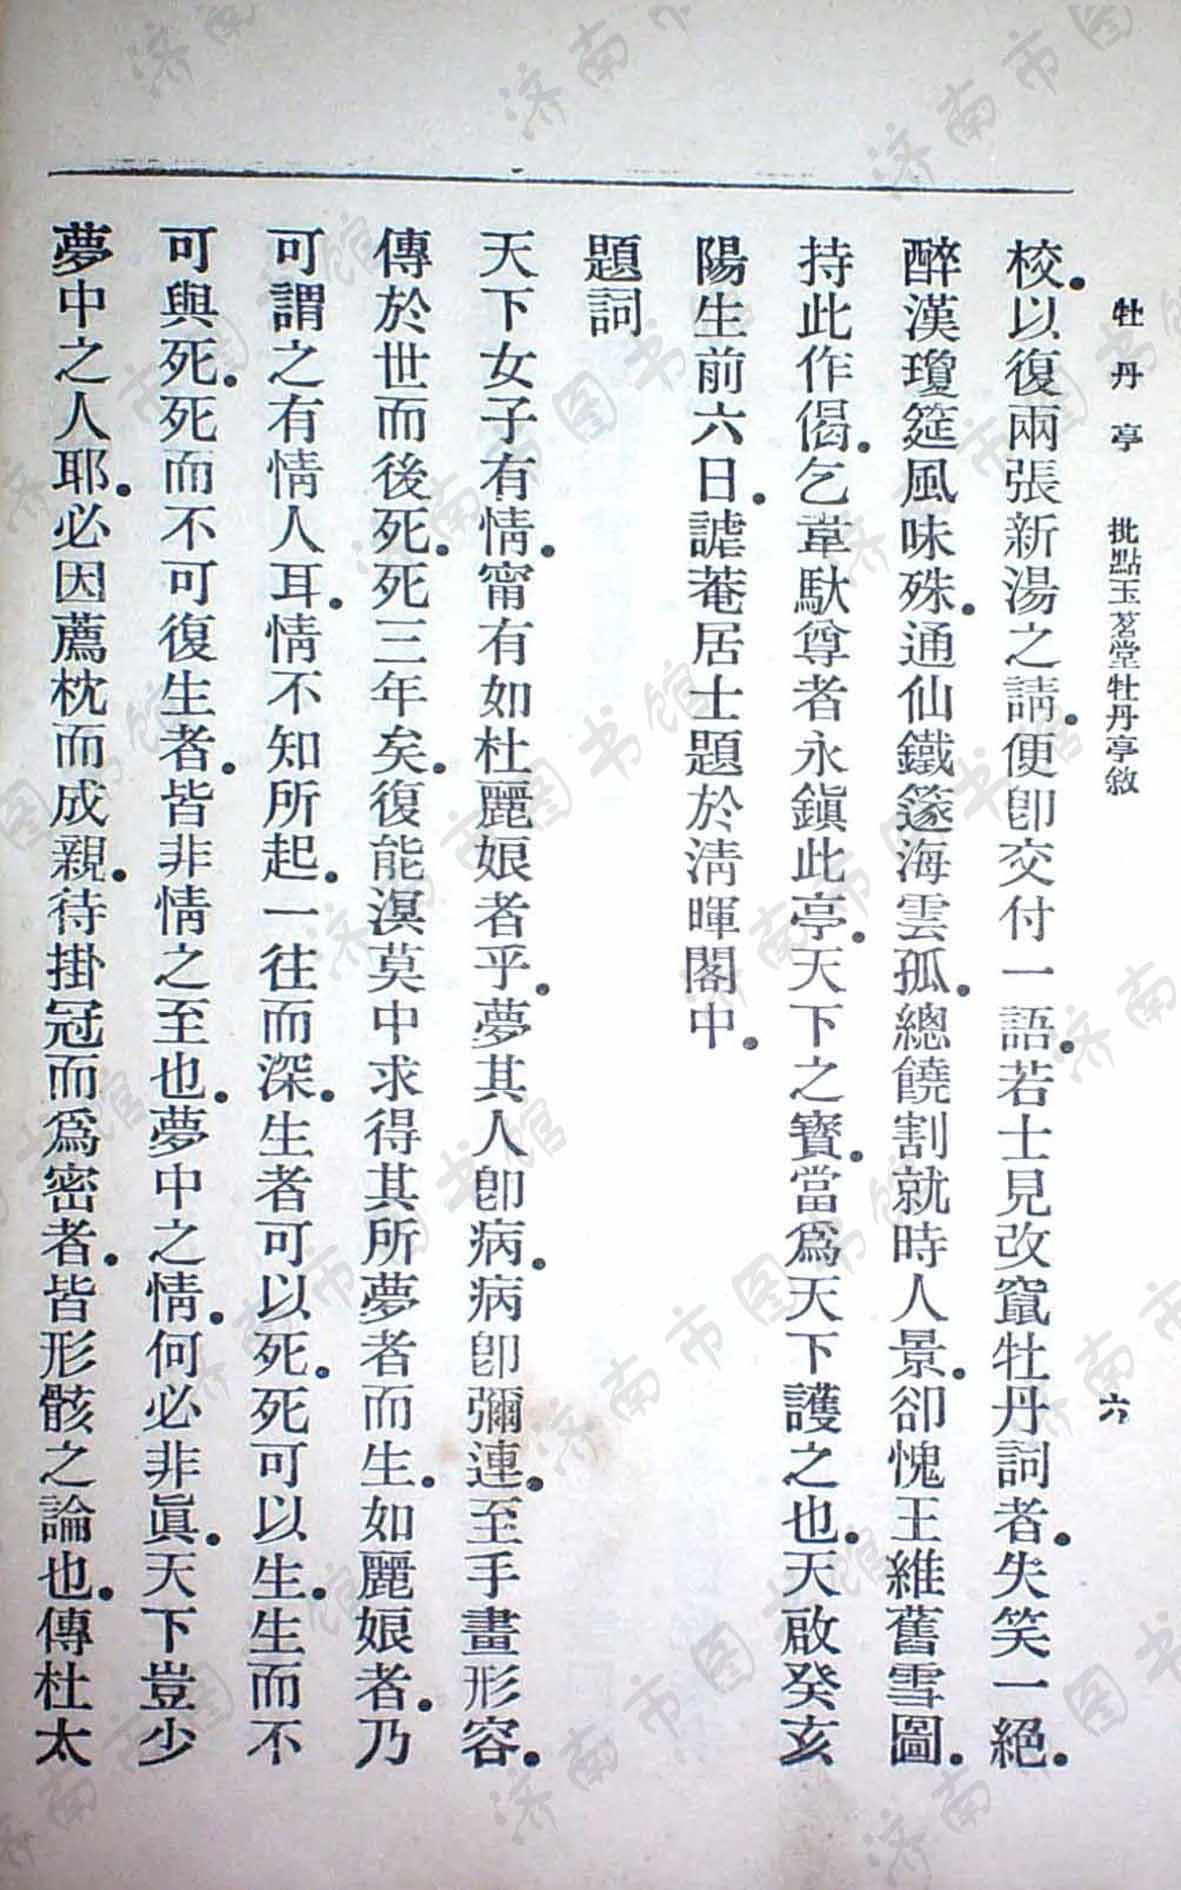 牡丹亭 批點玉茗堂牡丹亭敘 六
校。以復兩張新湯之請。便卽交付一語。若士見改竄牡丹詞者。失笑一絕。
醉漢瓊筵風味殊。通仙鐵篴海雲孤。總饒割就時人景。卻愧王維舊雪圖。
持此作偈。乞韋馱尊者永鎭此亭。天下之寶。當爲天下護之也。天啟癸亥
陽生前六日。謔菴居士題於淸暉閣中。
題詞
天下女子有情。甯有如杜麗娘者乎。夢其人卽病。病卽彌連。至手畫形容。
傳於世而後死。死三年矣。復能溟莫中求得其所夢者而生。如麗娘者。乃
可謂之有情人耳。情不知所起。一往而深。生者可以死。死可以生。生而不
可與死。死而不可復生者。皆非情之至也。夢中之情。何必非眞。天下豈少
夢中之人耶。必因薦枕而成親。待掛冠而爲密者。皆形骸之論也。傳杜太
济南市图书馆